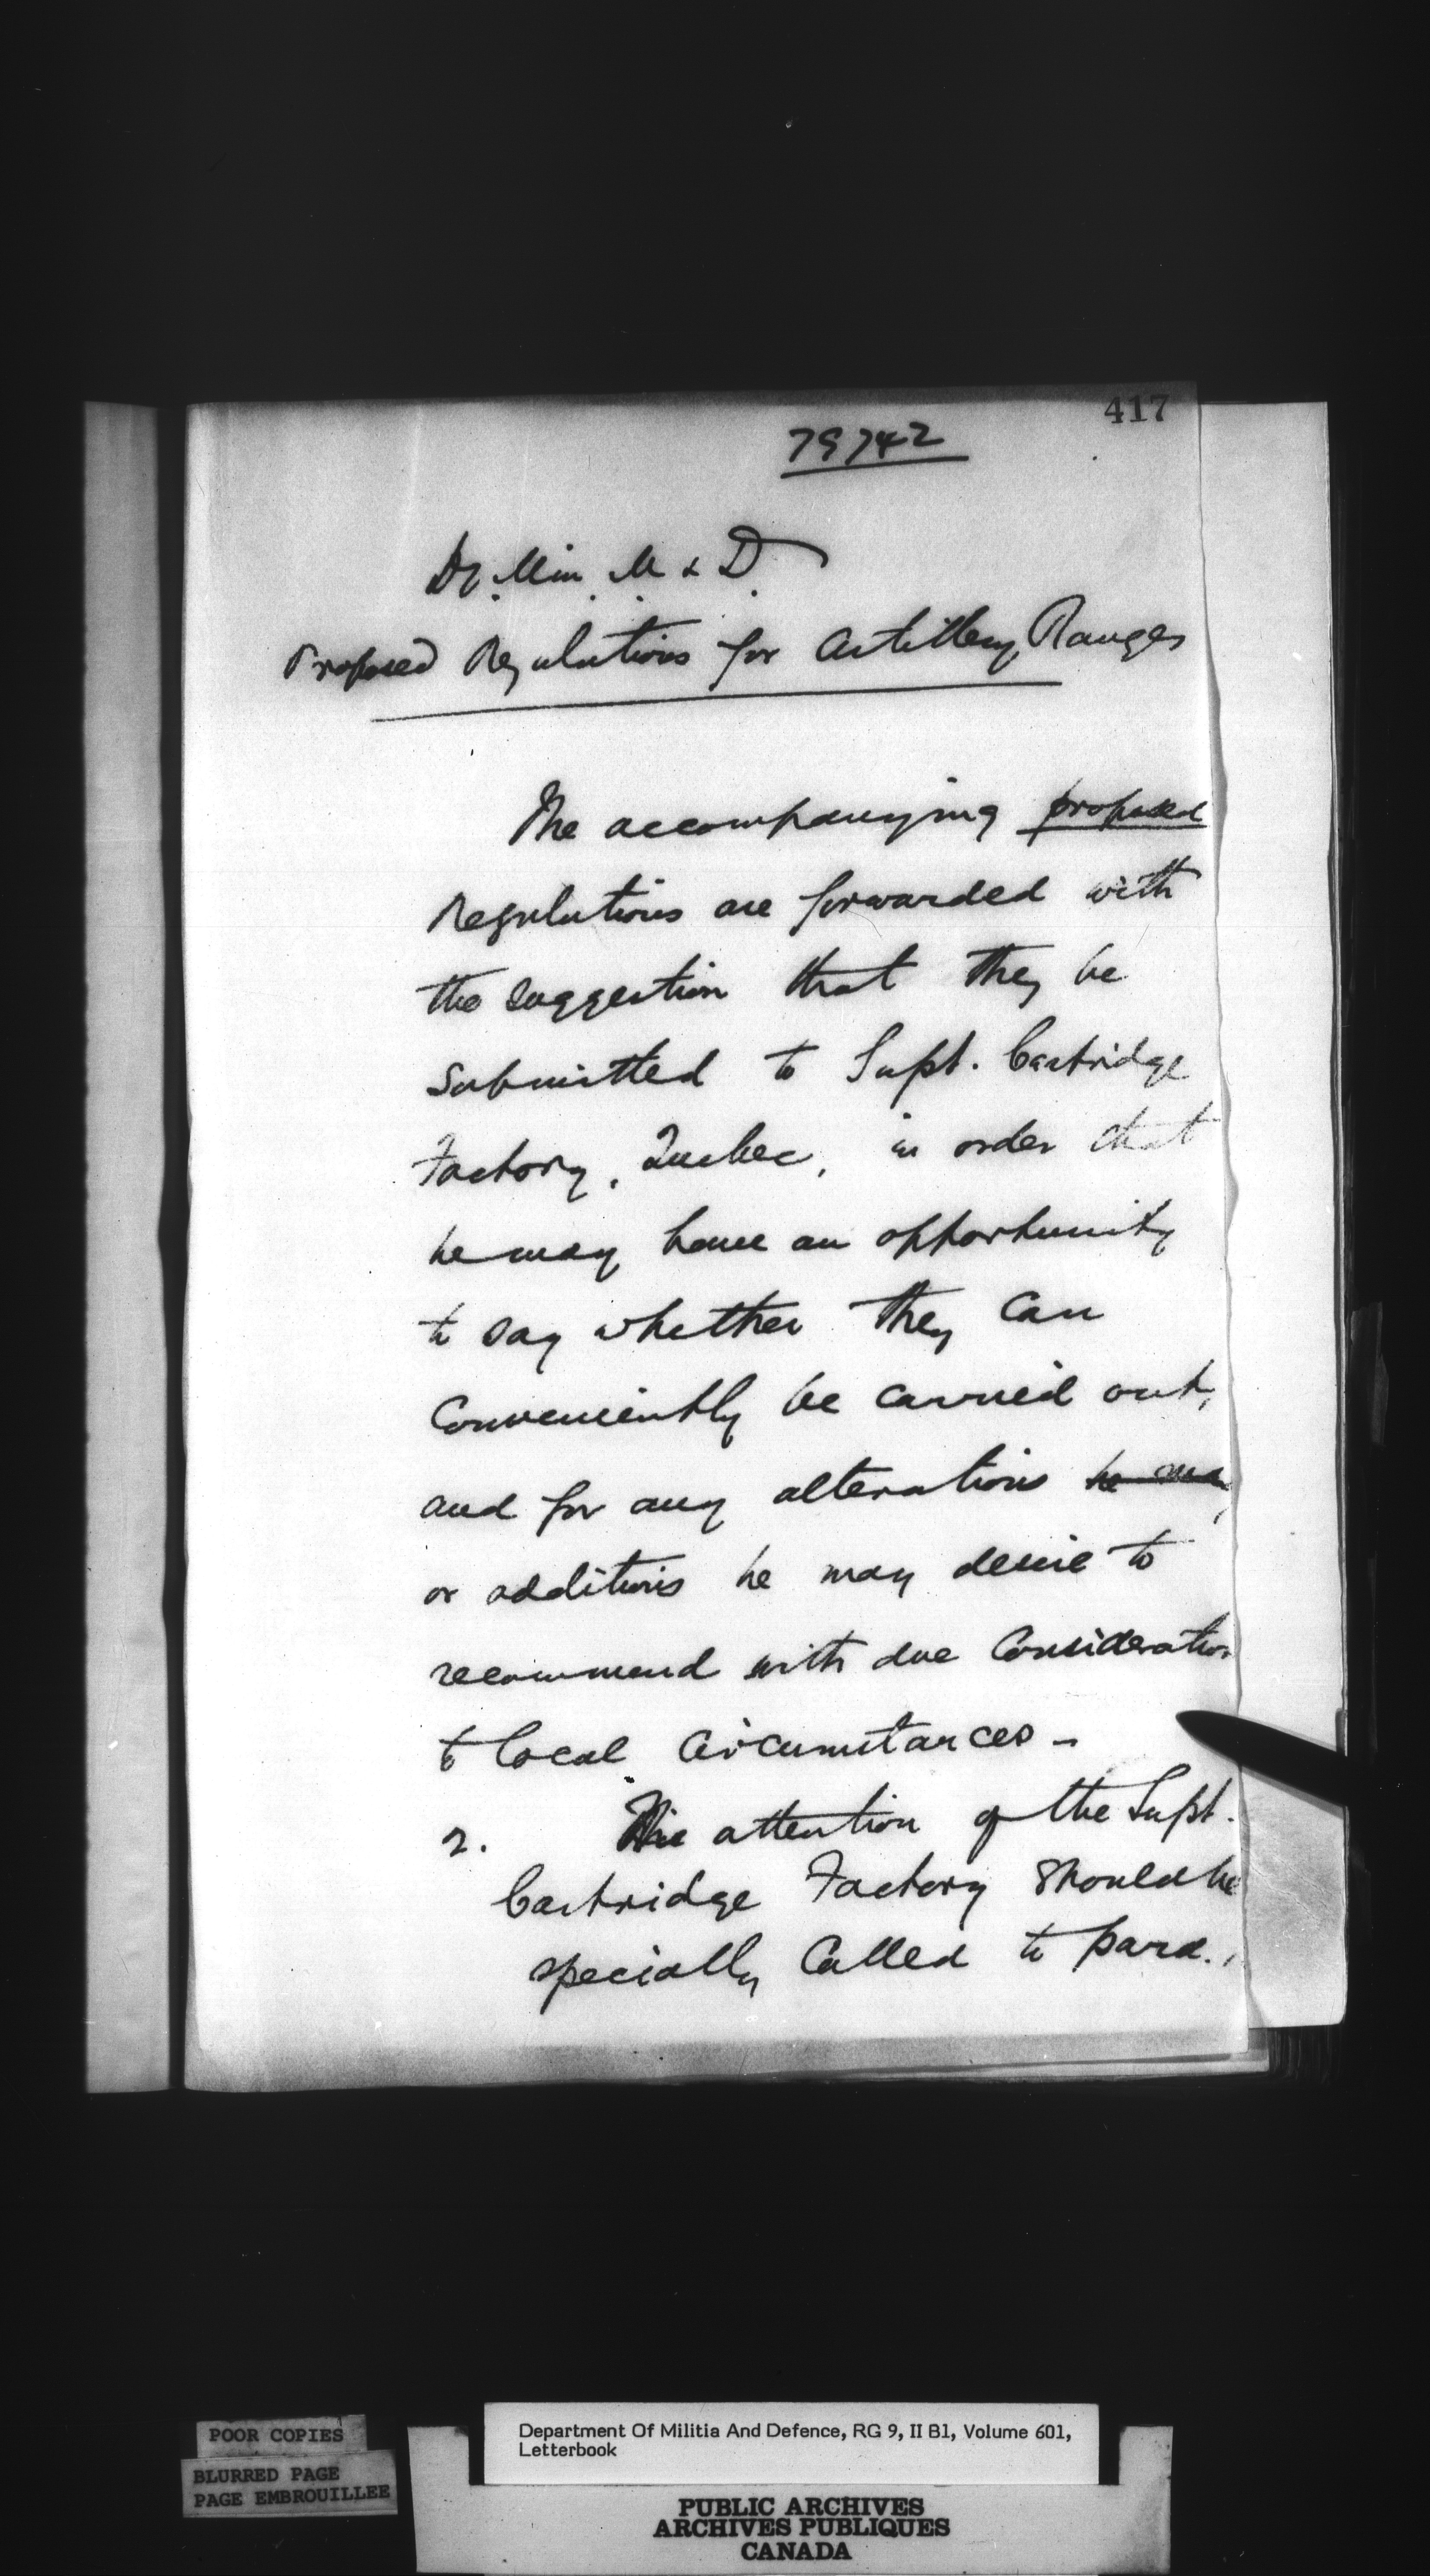 417
79742
Dy. Min. M & D.
Proposed Regulations for Artillery Ranges
The accompanying proposed
Regulations are forwarded with
the suggestion that they be
submitted to Supt. Cartridge
Factory, Quebec, in order that
he may have an opportunity
to say whether they can
conveniently be carried out,
and for any alterations he may
or additions he may desire to
recommend with due consideration
to local circumstances –
2. The attention of the Supt.
Cartridge Factory should be
specially called to para.
POOR COPIES
BLURRED PAGE
PAGE EMBROUILLEE
Department Of Militia And Defence, RG 9, II B1, Volume 601,
Letterbook
PUBLIC ARCHIVES
ARCHIVES PUBLIQUES
CANADA